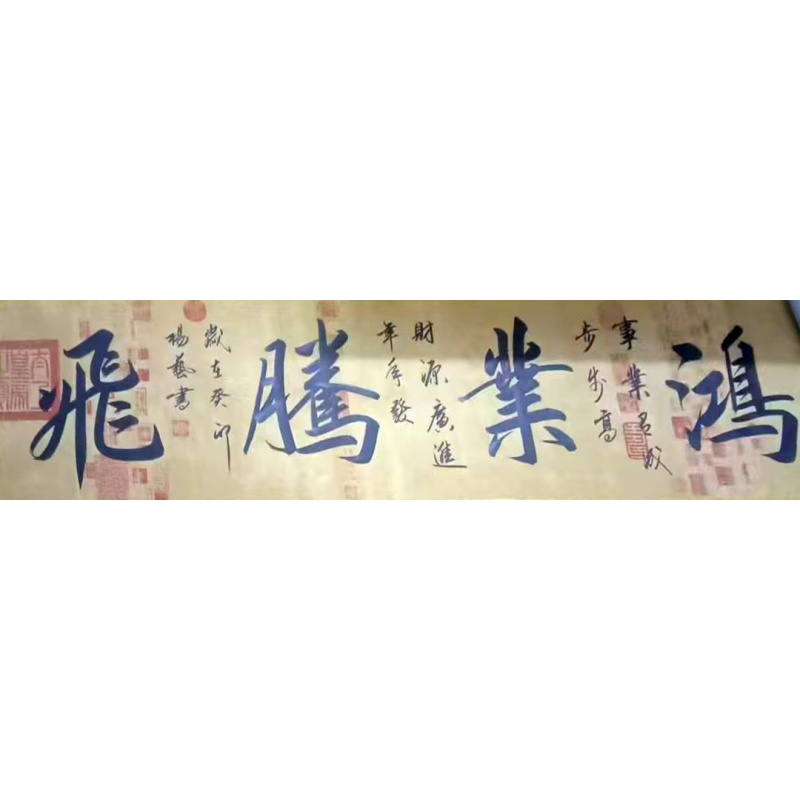 鴻
事業
成
步步高
業
財源廣進
年年發
騰
歲在癸卯
楊藝書
飛